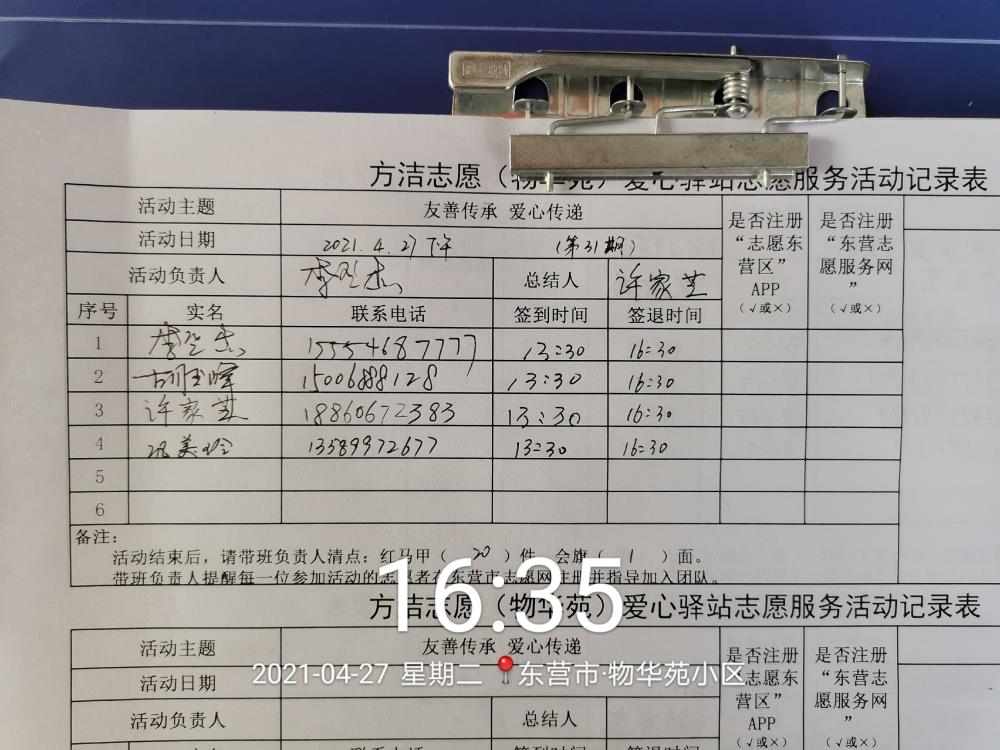 方洁志愿（物华苑）爱心驿站志愿服务活动记录表
活动主题 友善传承 爱心传递 是否注册“志愿东营区”APP（√或×） 是否注册“东营志愿服务网”（√或×）
活动日期 2021.4.27下午 （第31期）
活动负责人 李登杰 总结人 许家芝
序号 实名 联系电话 签到时间 签退时间
1 李登杰 15554687777 13:30 16:30
2 15006888128 13:30 16:30
3 许家芝 18860672383 13:30 16:30
4 巩美玲 13589972677 13:30 16:30
5
6
备注：
活动结束后，请带班负责人清点：红马甲（ 20 ）件 会旗（ 1 ）面。
带班负责人提醒每一位参加活动的志愿者在东营市志愿网注册并指导加入团队。
16:35
方洁志愿（物华苑）爱心驿站志愿服务活动记录表
活动主题 友善传承 爱心传递 是否注册“志愿东营区”APP（√或×） 是否注册“东营志愿服务网”（√或×）
2021-04-27 星期二 东营市·物华苑小区
活动日期
活动负责人 总结人
联系电话 签到时间 签退时间